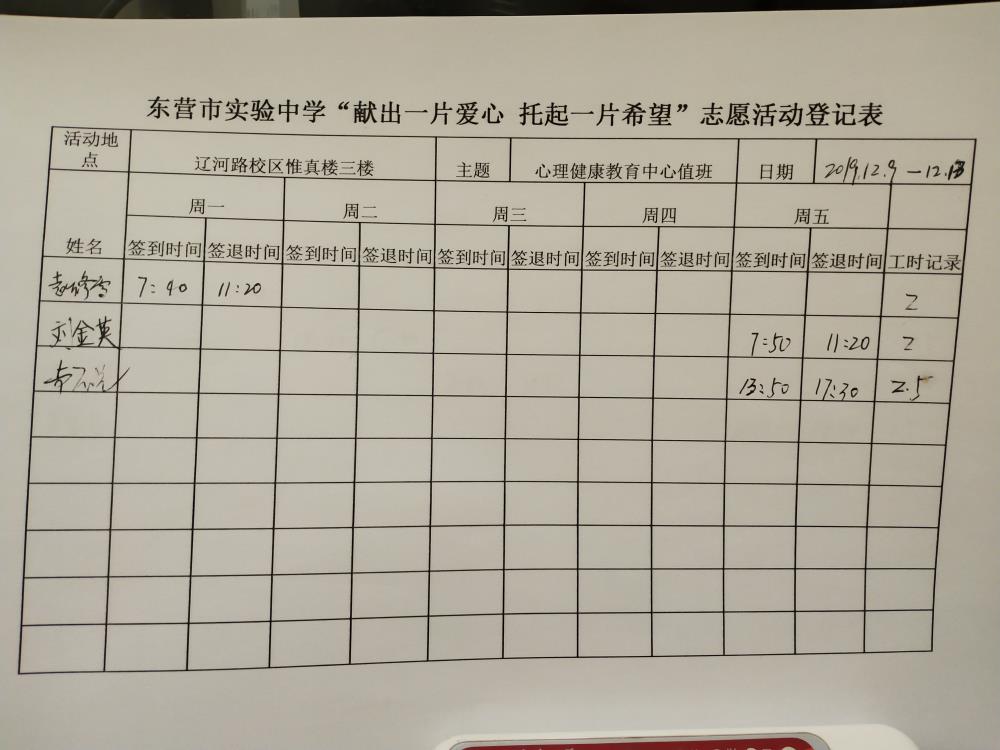 东营市实验中学“献出一片爱心 托起一片希望”志愿活动登记表
活动地点 辽河路校区惟真楼三楼 主题 心理健康教育中心值班 日期 2019.12.9—12.13
姓名 周一 周二 周三 周四 周五
签到时间 签退时间 签到时间 签退时间 签到时间 签退时间 签到时间 签退时间 签到时间 签退时间 工时记录
7:40 11:20 2
刘金英 7:50 11:20 2
13:50 17:30 2.5